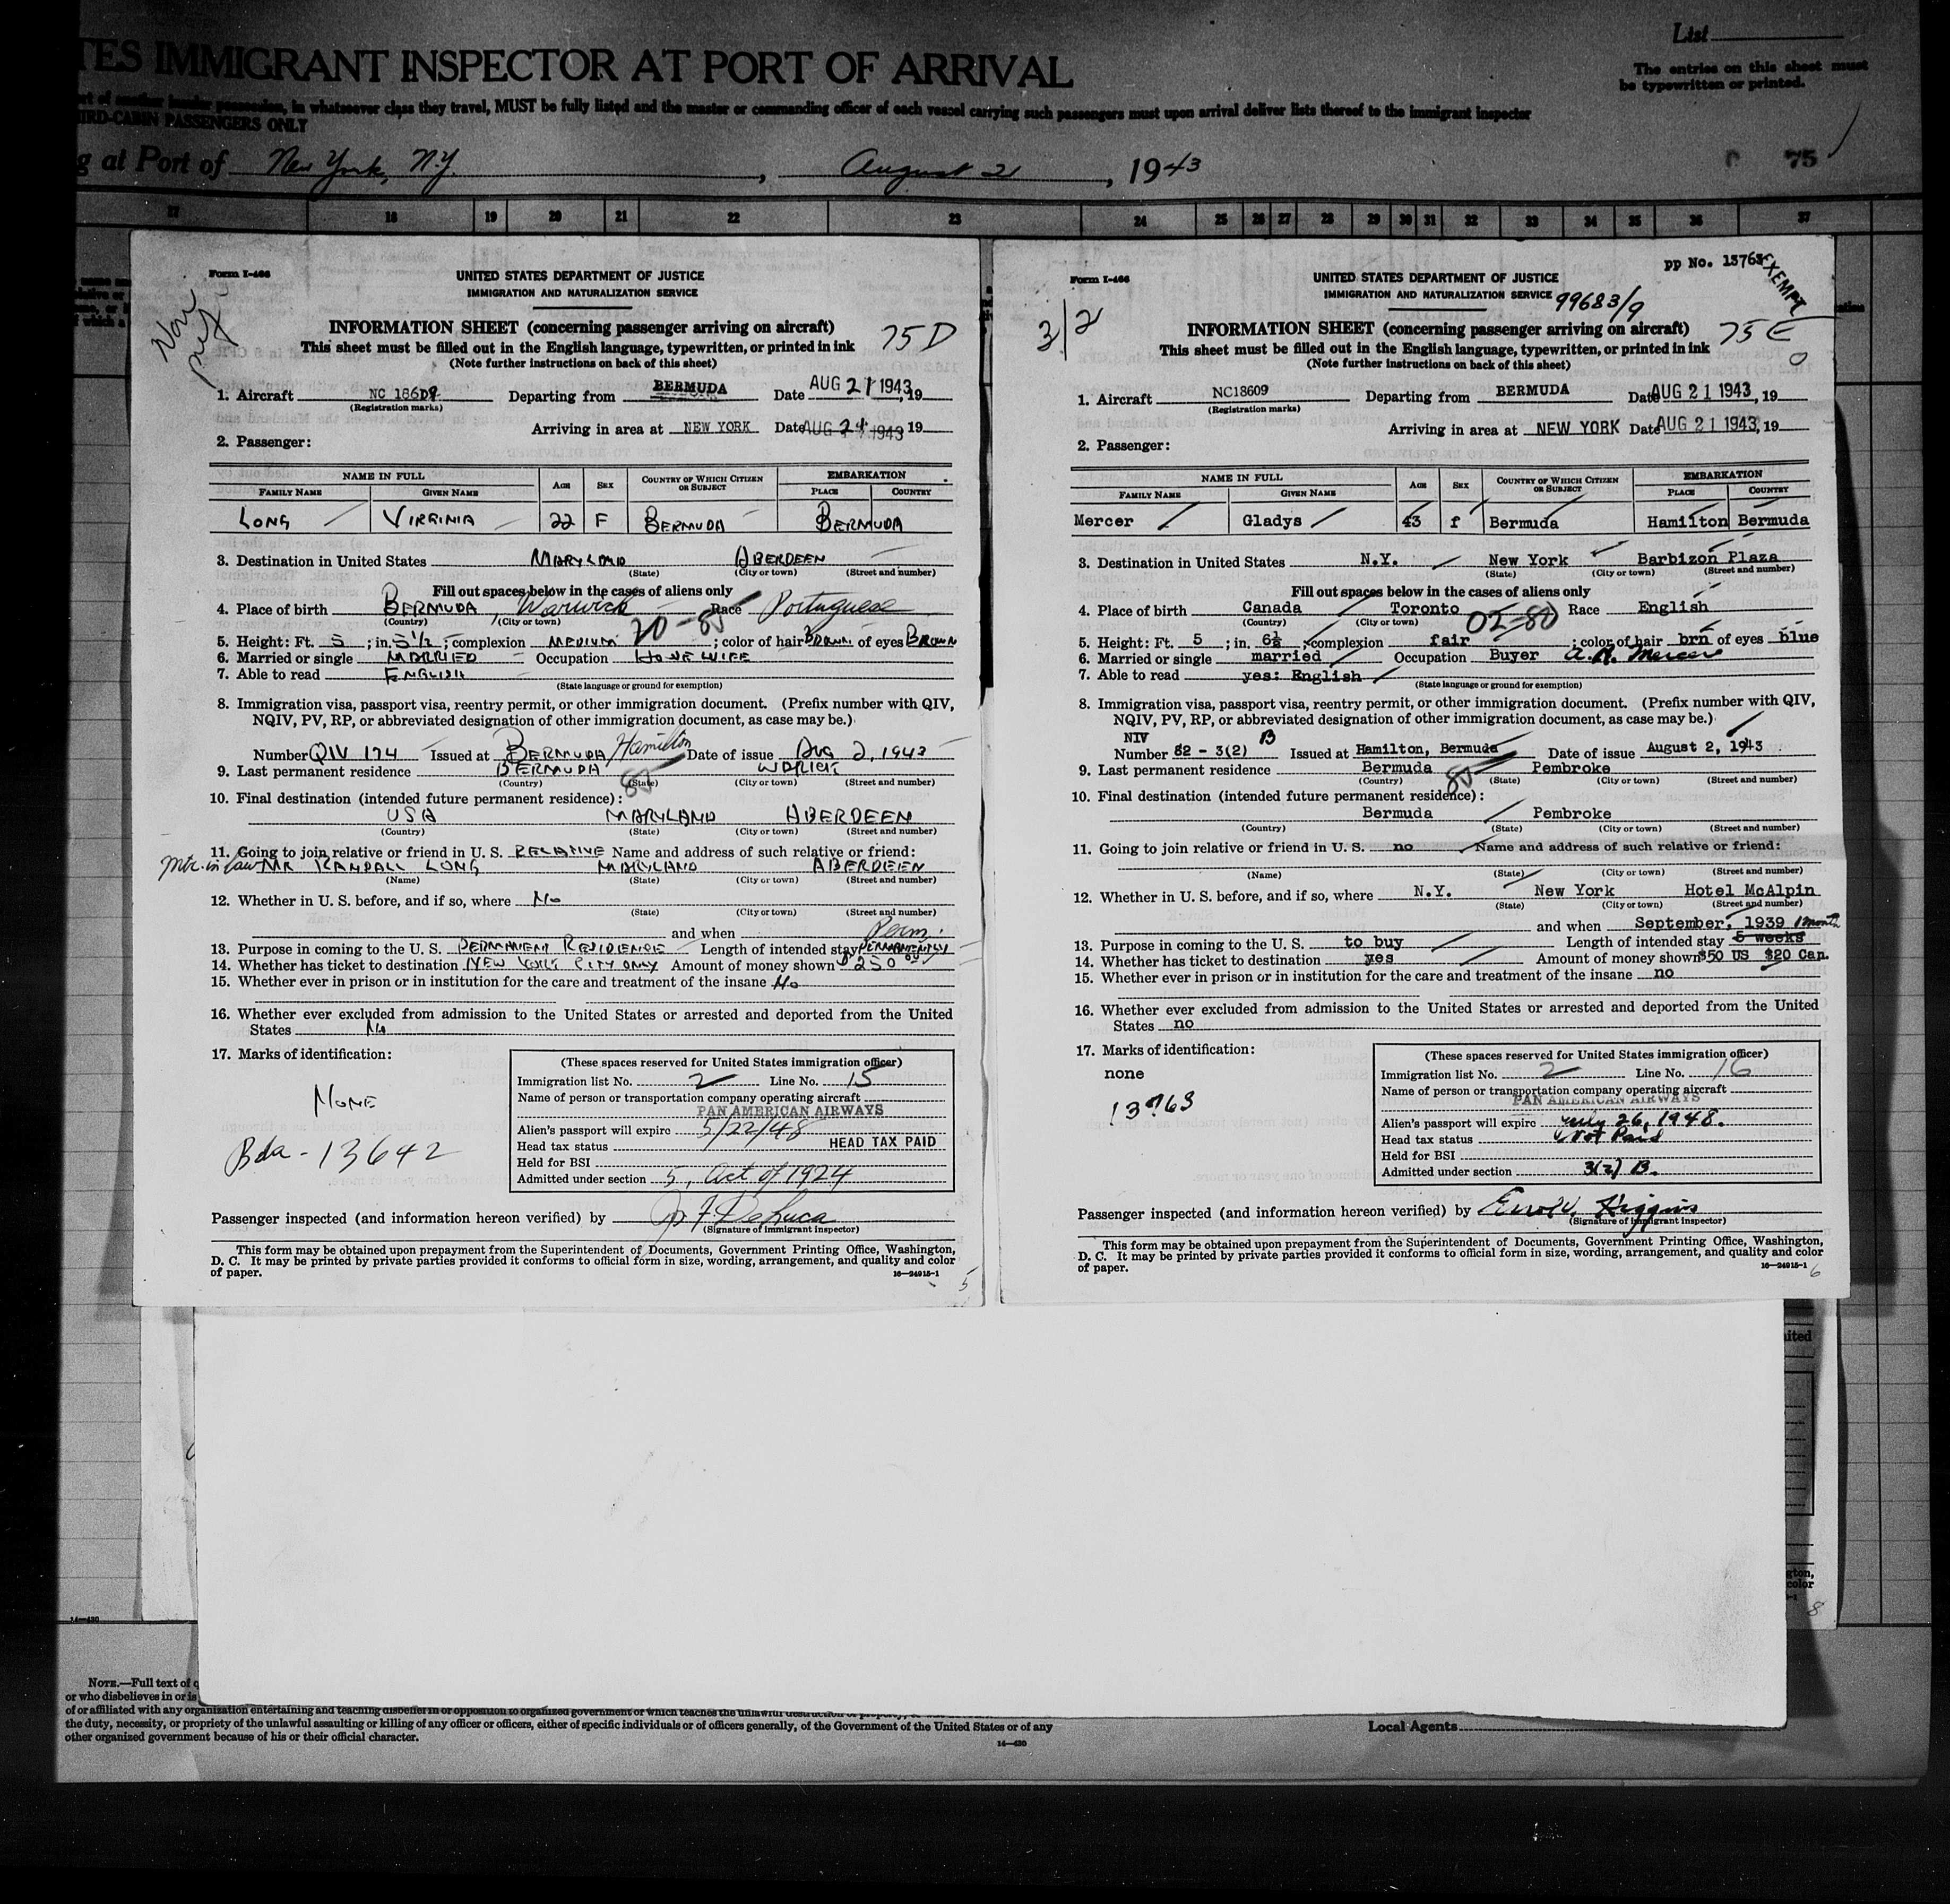 TES IMMIGRANT INSPECTOR AT PORT OF ARRIVAL
List
The entries on this sheet must
be typewritten or printed.
in whatsoever class they travel, MUST be fully listed and the master or commanding officer of each vessel carrying such passengers must upon arrival deliver lists thereof to the immigrant inspector
IRD-CABIN PASSENGERS ONLY
g at Port of New York, N.Y. , August 21 , 1943
75
17 18 19 20 21 22 23 24 25 26 27 28 29 30 31 32 33 34 35 36 37
Form I-466
Non
UNITED STATES DEPARTMENT OF JUSTICE
IMMIGRATION AND NATURALIZATION SERVICE
INFORMATION SHEET (concerning passenger arriving on aircraft)
75 D
This sheet must be filled out in the English language, typewritten, or printed in ink
(Note further instructions on back of this sheet)
1. Aircraft NC 18609 Departing from BERMUDA Date AUG 21 1943, 19
(Registration marks)
Arriving in area at NEW YORK Date AUG 21 1943 19
2. Passenger:
NAME IN FULL AGE SEX COUNTRY OF WHICH CITIZEN OR SUBJECT EMBARKATION
FAMILY NAME GIVEN NAME PLACE COUNTRY
LONG VIRGINIA 22 F BERMUDA BERMUDA
3. Destination in United States MARYLAND ABERDEEN
(State) (City or town) (Street and number)
Fill out spaces below in the cases of aliens only
4. Place of birth BERMUDA, Warwick Race Portuguese
(Country) (City or town)
20-85
5. Height: Ft. 5 ; in. 5 1/2 ; complexion MEDIUM ; color of hair BROWN of eyes BROWN
6. Married or single MARRIED Occupation HOUSEWIFE
7. Able to read ENGLISH
(State language or ground for exemption)
8. Immigration visa, passport visa, reentry permit, or other immigration document. (Prefix number with QIV,
NQIV, PV, RP, or abbreviated designation of other immigration document, as case may be.)
Number QIV 174 Issued at BERMUDA/Hamilton Date of issue AUG 2, 1943
9. Last permanent residence BERMUDA WORICK
(Country) (State) (City or town) (Street and number)
85
10. Final destination (intended future permanent residence):
USA MARYLAND ABERDEEN
(Country) (State) (City or town) (Street and number)
11. Going to join relative or friend in U. S. RELATIVE Name and address of such relative or friend:
MR RANDALL LONG MARYLAND ABERDEEN
(Name) (State) (City or town) (Street and number)
12. Whether in U. S. before, and if so, where No
(State) (City or town) (Street and number)
and when Perm.
13. Purpose in coming to the U. S. PERMANENT RESIDENSE Length of intended stay PERMANENTLY
14. Whether has ticket to destination NEW YORK CITY ONLY Amount of money shown $250
15. Whether ever in prison or in institution for the care and treatment of the insane No
16. Whether ever excluded from admission to the United States or arrested and deported from the United
States No
17. Marks of identification:
NONE
Bda - 13642
(These spaces reserved for United States immigration officer)
Immigration list No. 2 Line No. 15
Name of person or transportation company operating aircraft
PAN AMERICAN AIRWAYS
Alien's passport will expire 5/22/48
Head tax status HEAD TAX PAID
Held for BSI
Admitted under section 5, Act of 1924
Passenger inspected (and information hereon verified) by
(Signature of immigrant inspector)
This form may be obtained upon prepayment from the Superintendent of Documents, Government Printing Office, Washington,
D. C. It may be printed by private parties provided it conforms to official form in size, wording, arrangement, and quality and color
of paper.
16-24915-1
5
pp No. 13763
EXEMPT
Form I-466
3/2
UNITED STATES DEPARTMENT OF JUSTICE
IMMIGRATION AND NATURALIZATION SERVICE
99683/9
INFORMATION SHEET (concerning passenger arriving on aircraft)
75 E
This sheet must be filled out in the English language, typewritten, or printed in ink
(Note further instructions on back of this sheet)
1. Aircraft NC18609 Departing from BERMUDA Date AUG 21 1943, 19
(Registration marks)
Arriving in area at NEW YORK Date AUG 21 1943, 19
2. Passenger:
NAME IN FULL AGE SEX COUNTRY OF WHICH CITIZEN OR SUBJECT EMBARKATION
FAMILY NAME GIVEN NAME PLACE COUNTRY
Mercer Gladys 43 f Bermuda Hamilton Bermuda
3. Destination in United States N.Y. New York Barbizon Plaza
(State) (City or town) (Street and number)
Fill out spaces below in the cases of aliens only
4. Place of birth Canada Toronto Race English
(Country) (City or town)
02-80
5. Height: Ft. 5 ; in. 6½ ; complexion fair ; color of hair brn of eyes blue
6. Married or single married Occupation Buyer
7. Able to read yes: English
(State language or ground for exemption)
8. Immigration visa, passport visa, reentry permit, or other immigration document. (Prefix number with QIV,
NQIV, PV, RP, or abbreviated designation of other immigration document, as case may be.)
NIV B
Number 82 - 3(2) Issued at Hamilton, Bermuda Date of issue August 2, 1943
9. Last permanent residence Bermuda Pembroke
(Country) (State) (City or town) (Street and number)
85
10. Final destination (intended future permanent residence):
Bermuda Pembroke
(Country) (State) (City or town) (Street and number)
11. Going to join relative or friend in U. S. no Name and address of such relative or friend:
(Name) (State) (City or town) (Street and number)
12. Whether in U. S. before, and if so, where N.Y. New York Hotel McAlpin
(State) (City or town) (Street and number)
and when September, 1939 1 month
13. Purpose in coming to the U. S. to buy Length of intended stay 5 weeks
14. Whether has ticket to destination yes Amount of money shown $50 US $20 Can.
15. Whether ever in prison or in institution for the care and treatment of the insane no
16. Whether ever excluded from admission to the United States or arrested and deported from the United
States no
17. Marks of identification:
none
13763
(These spaces reserved for United States immigration officer)
Immigration list No. 2 Line No. 16
Name of person or transportation company operating aircraft
PAN AMERICAN AIRWAYS
Alien's passport will expire July 26, 1948.
Head tax status Not Paid
Held for BSI
Admitted under section 3(2) B.
Passenger inspected (and information hereon verified) by
(Signature of immigrant inspector)
This form may be obtained upon prepayment from the Superintendent of Documents, Government Printing Office, Washington,
D. C. It may be printed by private parties provided it conforms to official form in size, wording, arrangement, and quality and color
of paper.
16-24915-1
6
8
14-430
NOTE.—Full text of
or who disbelieves in or is
of or affiliated with any organization entertaining and teaching disbelief in or opposition to organized government or which teaches the unlawful destruction of property,
the duty, necessity, or propriety of the unlawful assaulting or killing of any officer or officers, either of specific individuals or of officers generally, of the Government of the United States or of any
other organized government because of his or their official character.
14-430
Local Agents